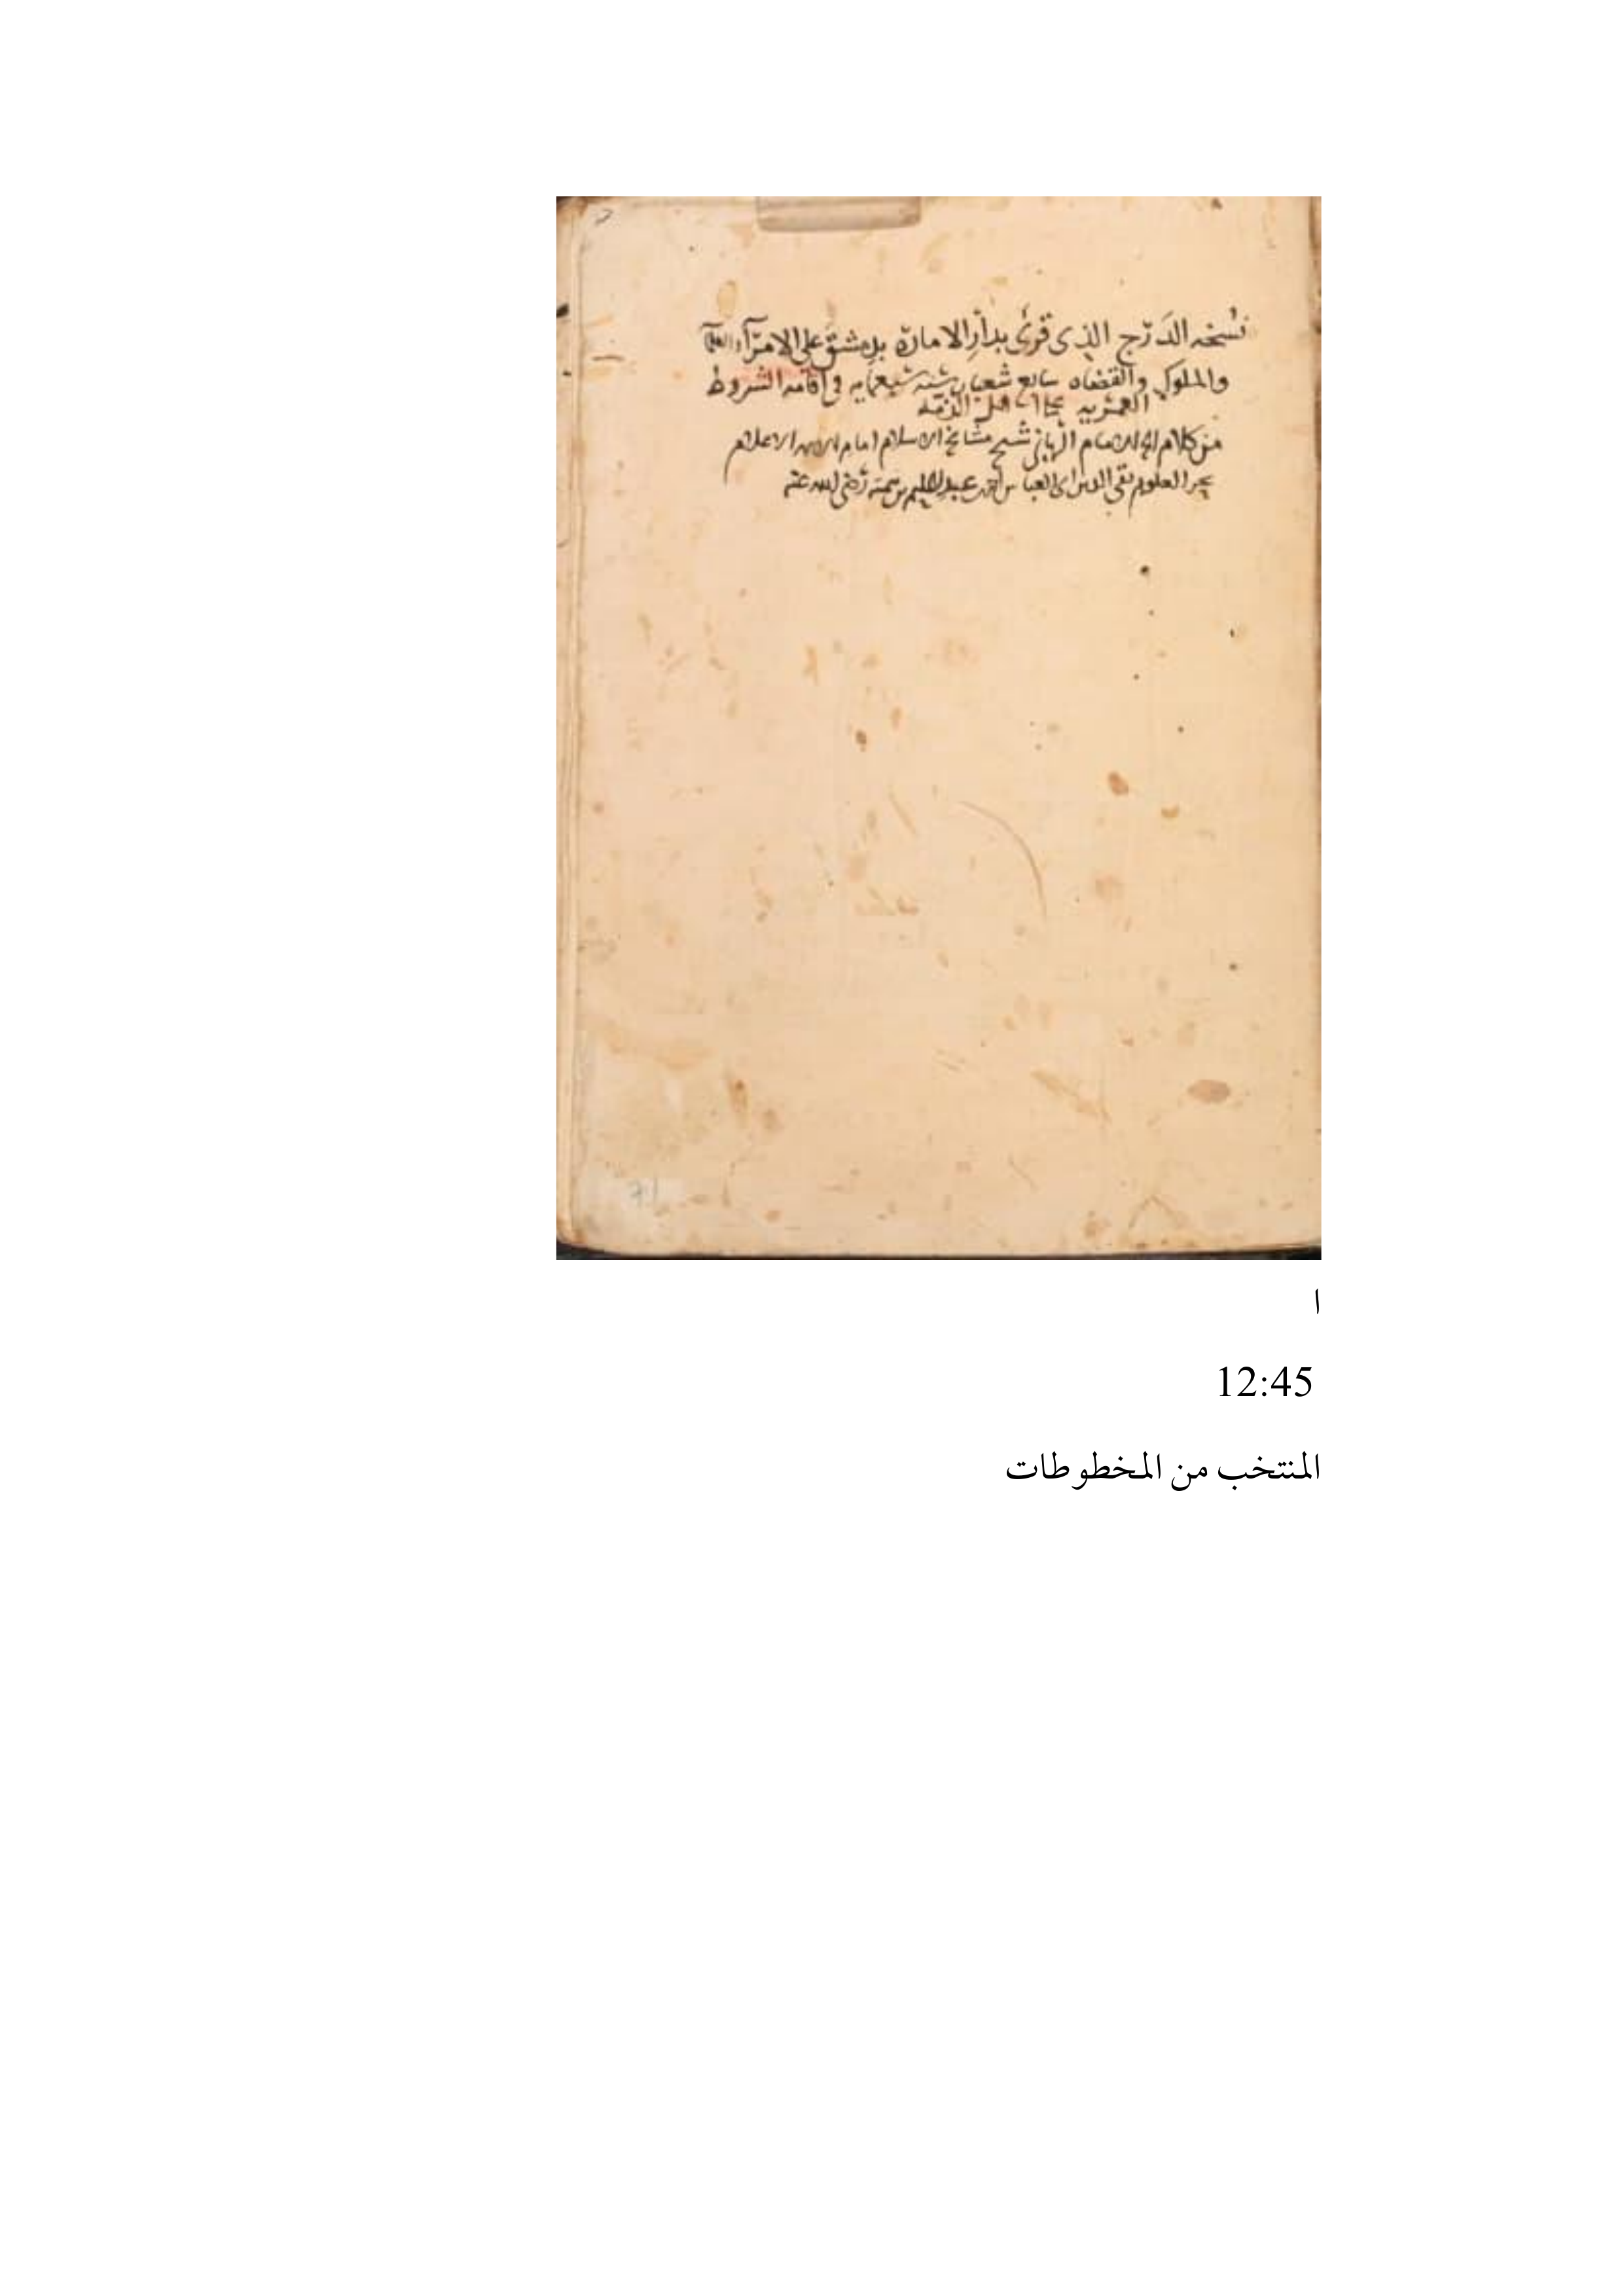 نسخه الدرج الذي قرئ بدار الامارة بدمشق على الامرآء والعلمآ
والملوك والقضاه سابع شعبان سنه سبعمايه في اقامه الشروط
العمريه على اهل الذمه
من كلام الامام الرباني شيخ مشايخ الاسلام امام الايمه الاعلام
بحر العلوم تقي الدين ابي العباس احمد بن عبد الحليم بن تيميه رضي الله عنه
71
ا
12:45
المنتخب من المخطوطات